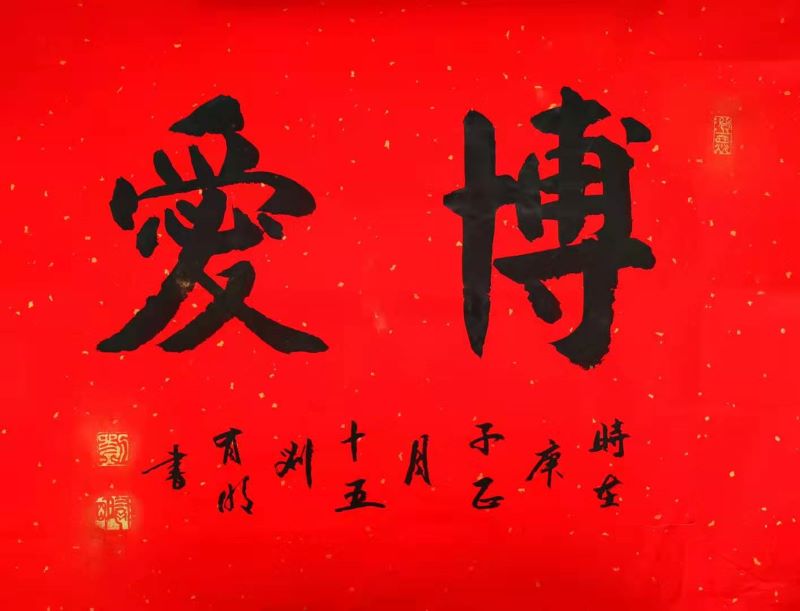 博愛
時在庚子正月十五刘有明書